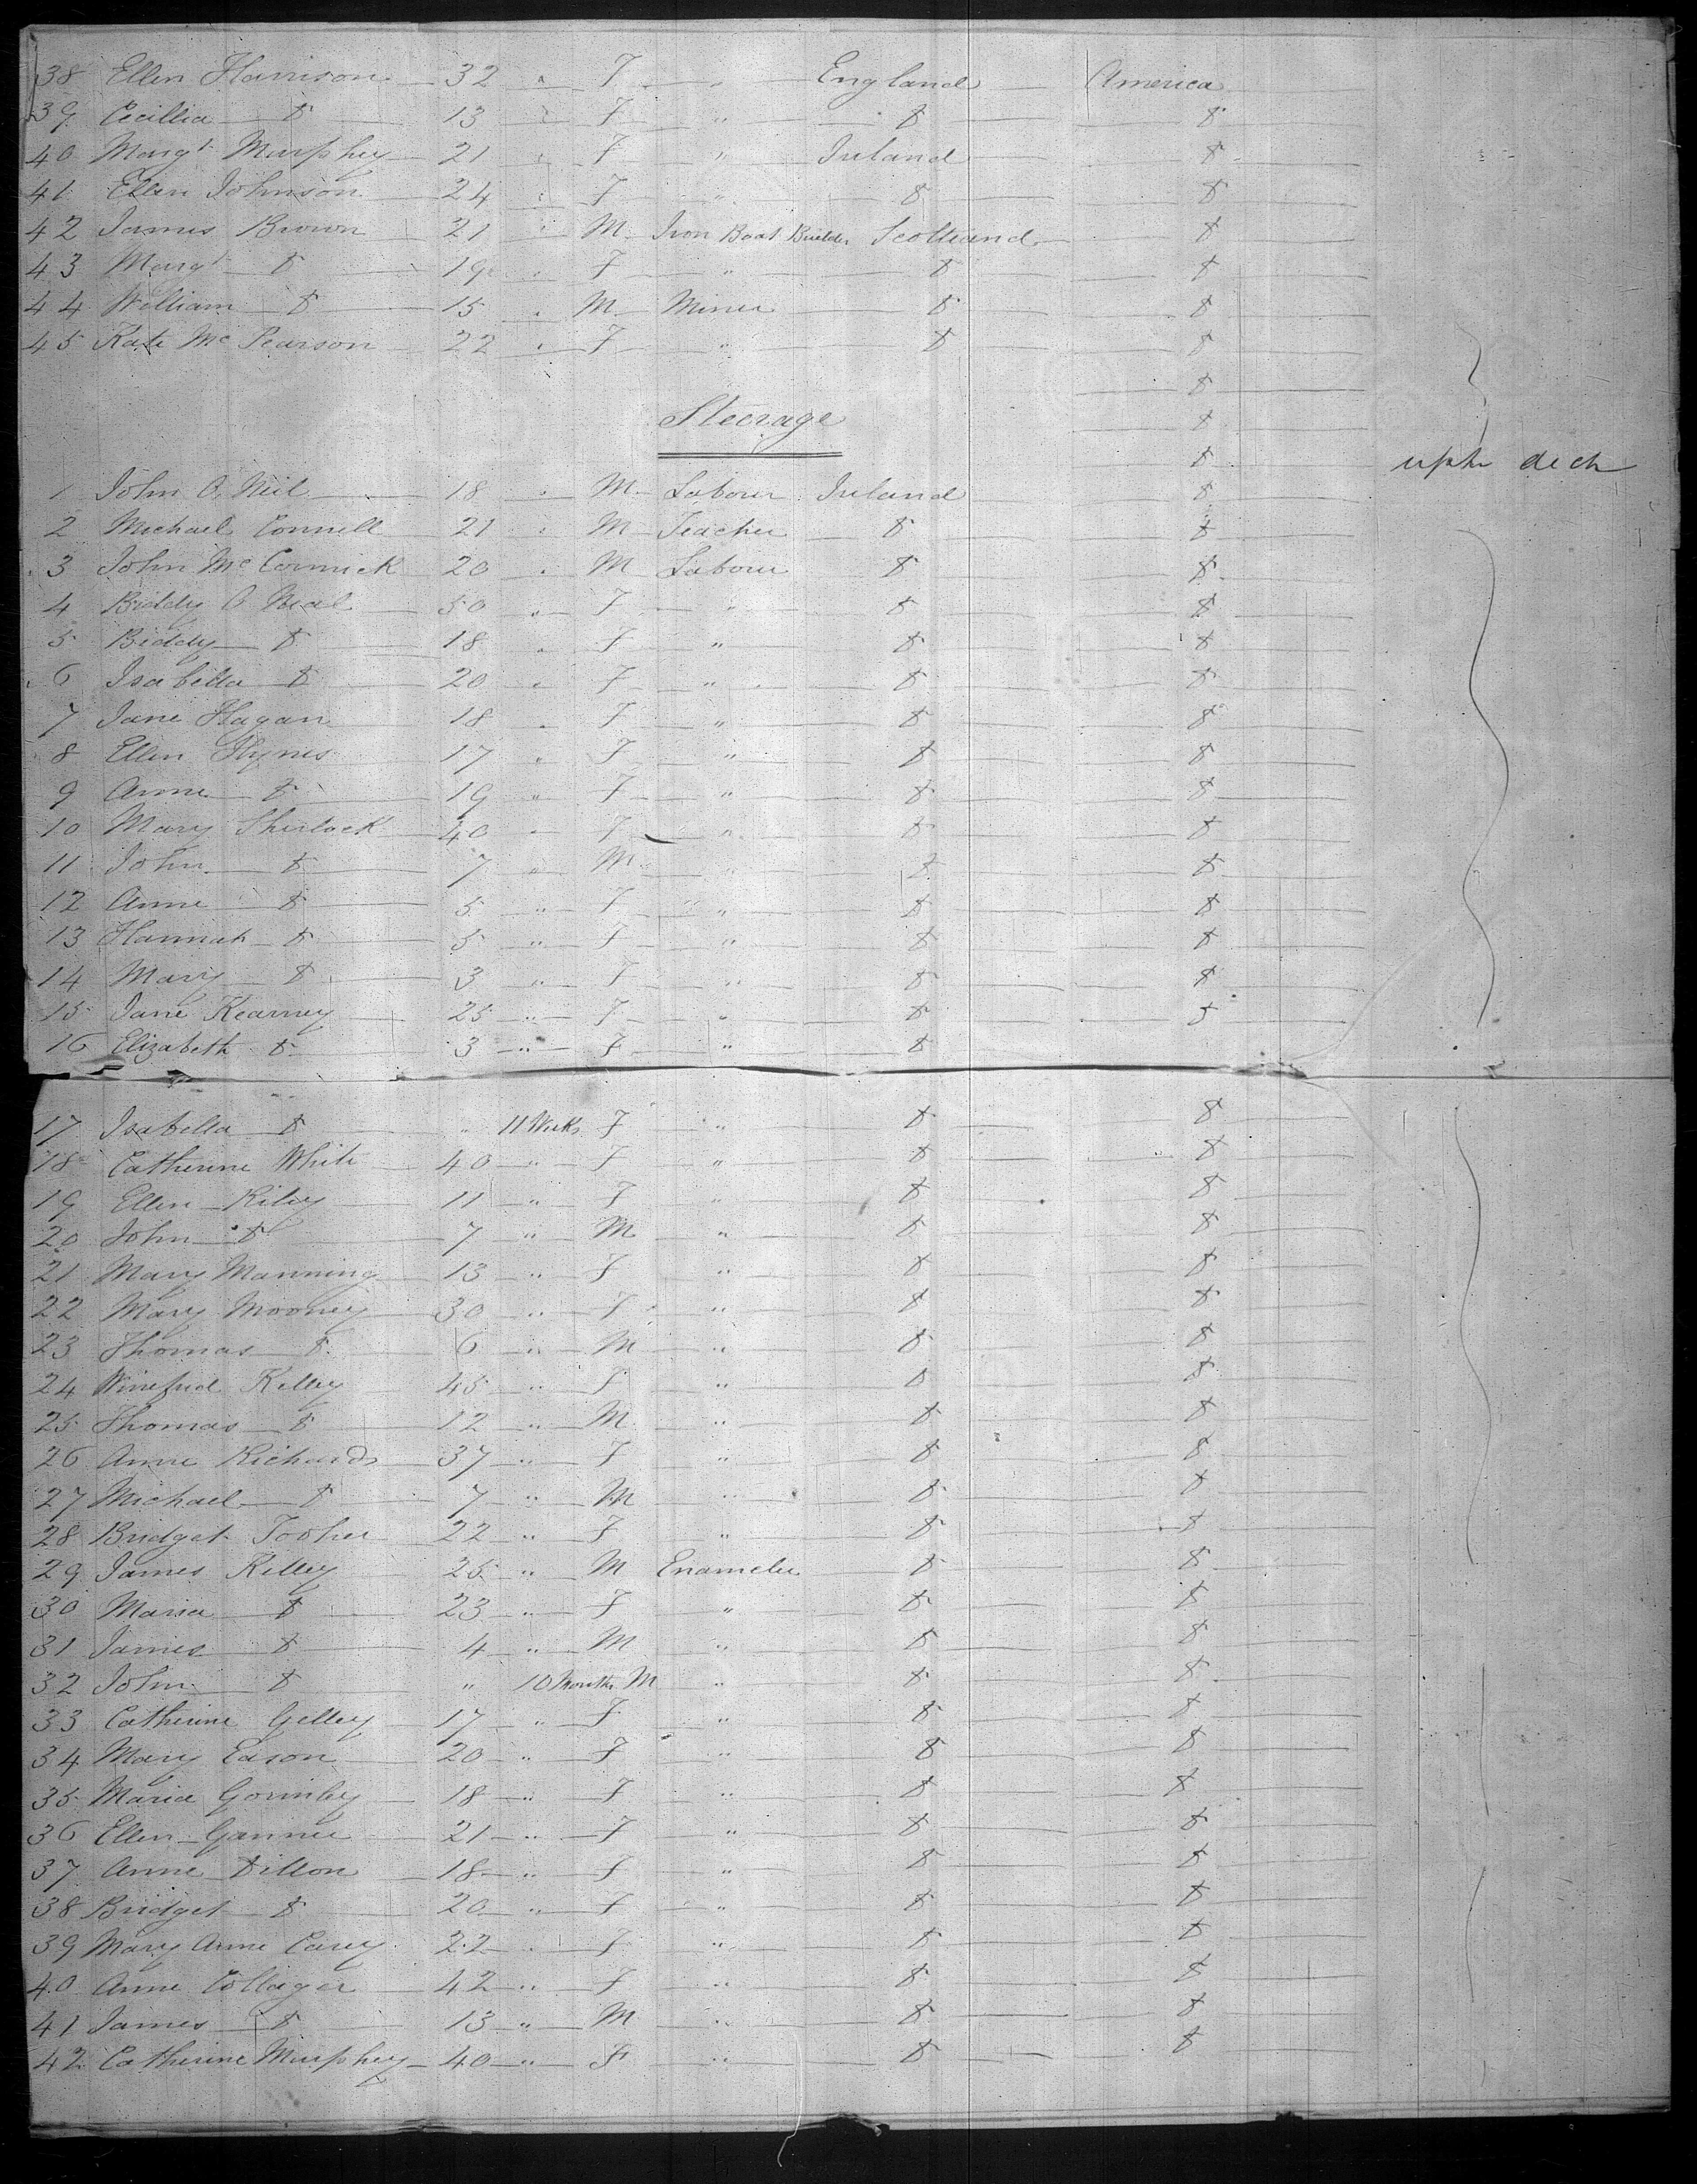 38 Ellen Harrison 32 " F " England America
39 Cecillia Do 13 " F " Do Do
40 Margt Murphey 21 " F " Ireland Do
41 Ellen Johnson 24 " F " Do Do
42 James Brown 21 " M Iron Boat Builder Scotland Do
43 Margt Do 19 " F " Do Do
44 William Do 15 " M Miner Do Do
45 Kate Mc Pearson 22 " F " Do Do
Do
Steerage Do
Do upper deck
1 John O Neil 18 " M Labour Ireland Do
2 Michael Connell 21 " M Teacher Do Do
3 John Mc Cormick 20 " M Labour Do Do
4 Biddy O Neal 50 " F " Do Do
5 Biddy Do 18 " F " Do Do
6 Isabella Do 20 " F " Do Do
7 Jane Hagan 18 " F " Do Do
8 Ellen Hynes 17 " F " Do Do
9 Anne Do 19 " F " Do Do
10 Mary Sherlock 40 " F " Do Do
11 John Do 7 " M " Do Do
12 Anne Do 5 " F " Do Do
13 Hannah Do 5 " F " Do Do
14 Mary Do 3 " F " Do Do
15 Jane Kearney 25 " F " Do Do
16 Elizabeth Do 3 " F " Do
17 Isabella Do " 11 Weeks F " Do Do
18 Catherine White 40 " F " Do Do
19 Ellen Riley 11 " F " Do Do
20 John Do 7 " M " Do Do
21 Mary Manning 13 " F " Do Do
22 Mary Mooney 30 " F " Do Do
23 Thomas Do 6 " M " Do Do
24 Winefred Kelley 45 " F " Do Do
25 Thomas Do 12 " M " Do Do
26 Anne Richards 37 " F " Do Do
27 Michael Do 7 " M " Do Do
28 Bridget Tooher 22 " F " Do Do
29 James Kelley 25 " M Enameler Do Do
30 Maria Do 23 " F " Do Do
31 James Do 4 " M " Do Do
32 John Do " 10 Months M " Do Do
33 Catherine Gelley 17 " F " Do Do
34 Mary Eason 20 " F " Do Do
35 Maria Gormley 18 " F " Do Do
36 Ellen Gannee 21 " F " Do Do
37 Anne Dillon 18 " F " Do Do
38 Bridget Do 20 " F " Do Do
39 Mary Anne Carey 22 " F " Do Do
40 Anne Collager 42 " F " Do Do
41 James Do 13 " M " Do Do
42 Catherine Murphey 40 " F " Do Do